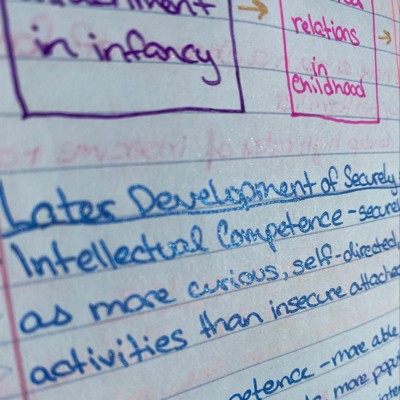 in infancy
relations
in
childhood
Later Development of Securely
Intellectual Competence - secure
as more curious, self-directed,
activities than insecure attached
- more able
more